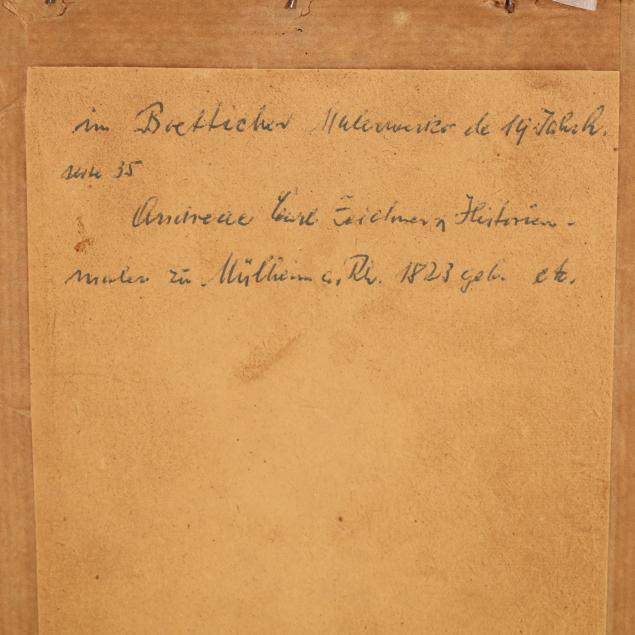 in Boetticher Malerwerke de 19. Jahrh.
seite 35
Andreae Carl Zeichner u Historien-
maler zu Mülheim a. Rh. 1823 geb. etc.